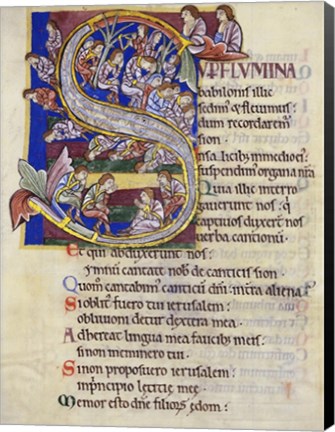 SUPFLUMINA
babilonis illic
sedimꝰ & fleuimus:
dum recordaremur
sion.
In salicib; in medio eiꝰ:
suspendimꝰ organa nr̄a
Quia illic interro
gauerunt nos: q̇
captiuos duxer̄t nos
uerba cantionū.
Et qui abduxerunt nos:
ẏmnū cantate nob̄ de canticis sion.
Quom̄ cantabimꝰ canticū dn̄i: in tr̄a aliena?
Si oblitꝰ fuero tui ierusalem:
obliuioni detur dextera mea.
Adhereat lingua mea faucibꝰ meis:
si non meminero tui.
Si non proposuero ierusalem:
in principio letitię meę.
Memor esto dn̄e filiorꝰ edom: